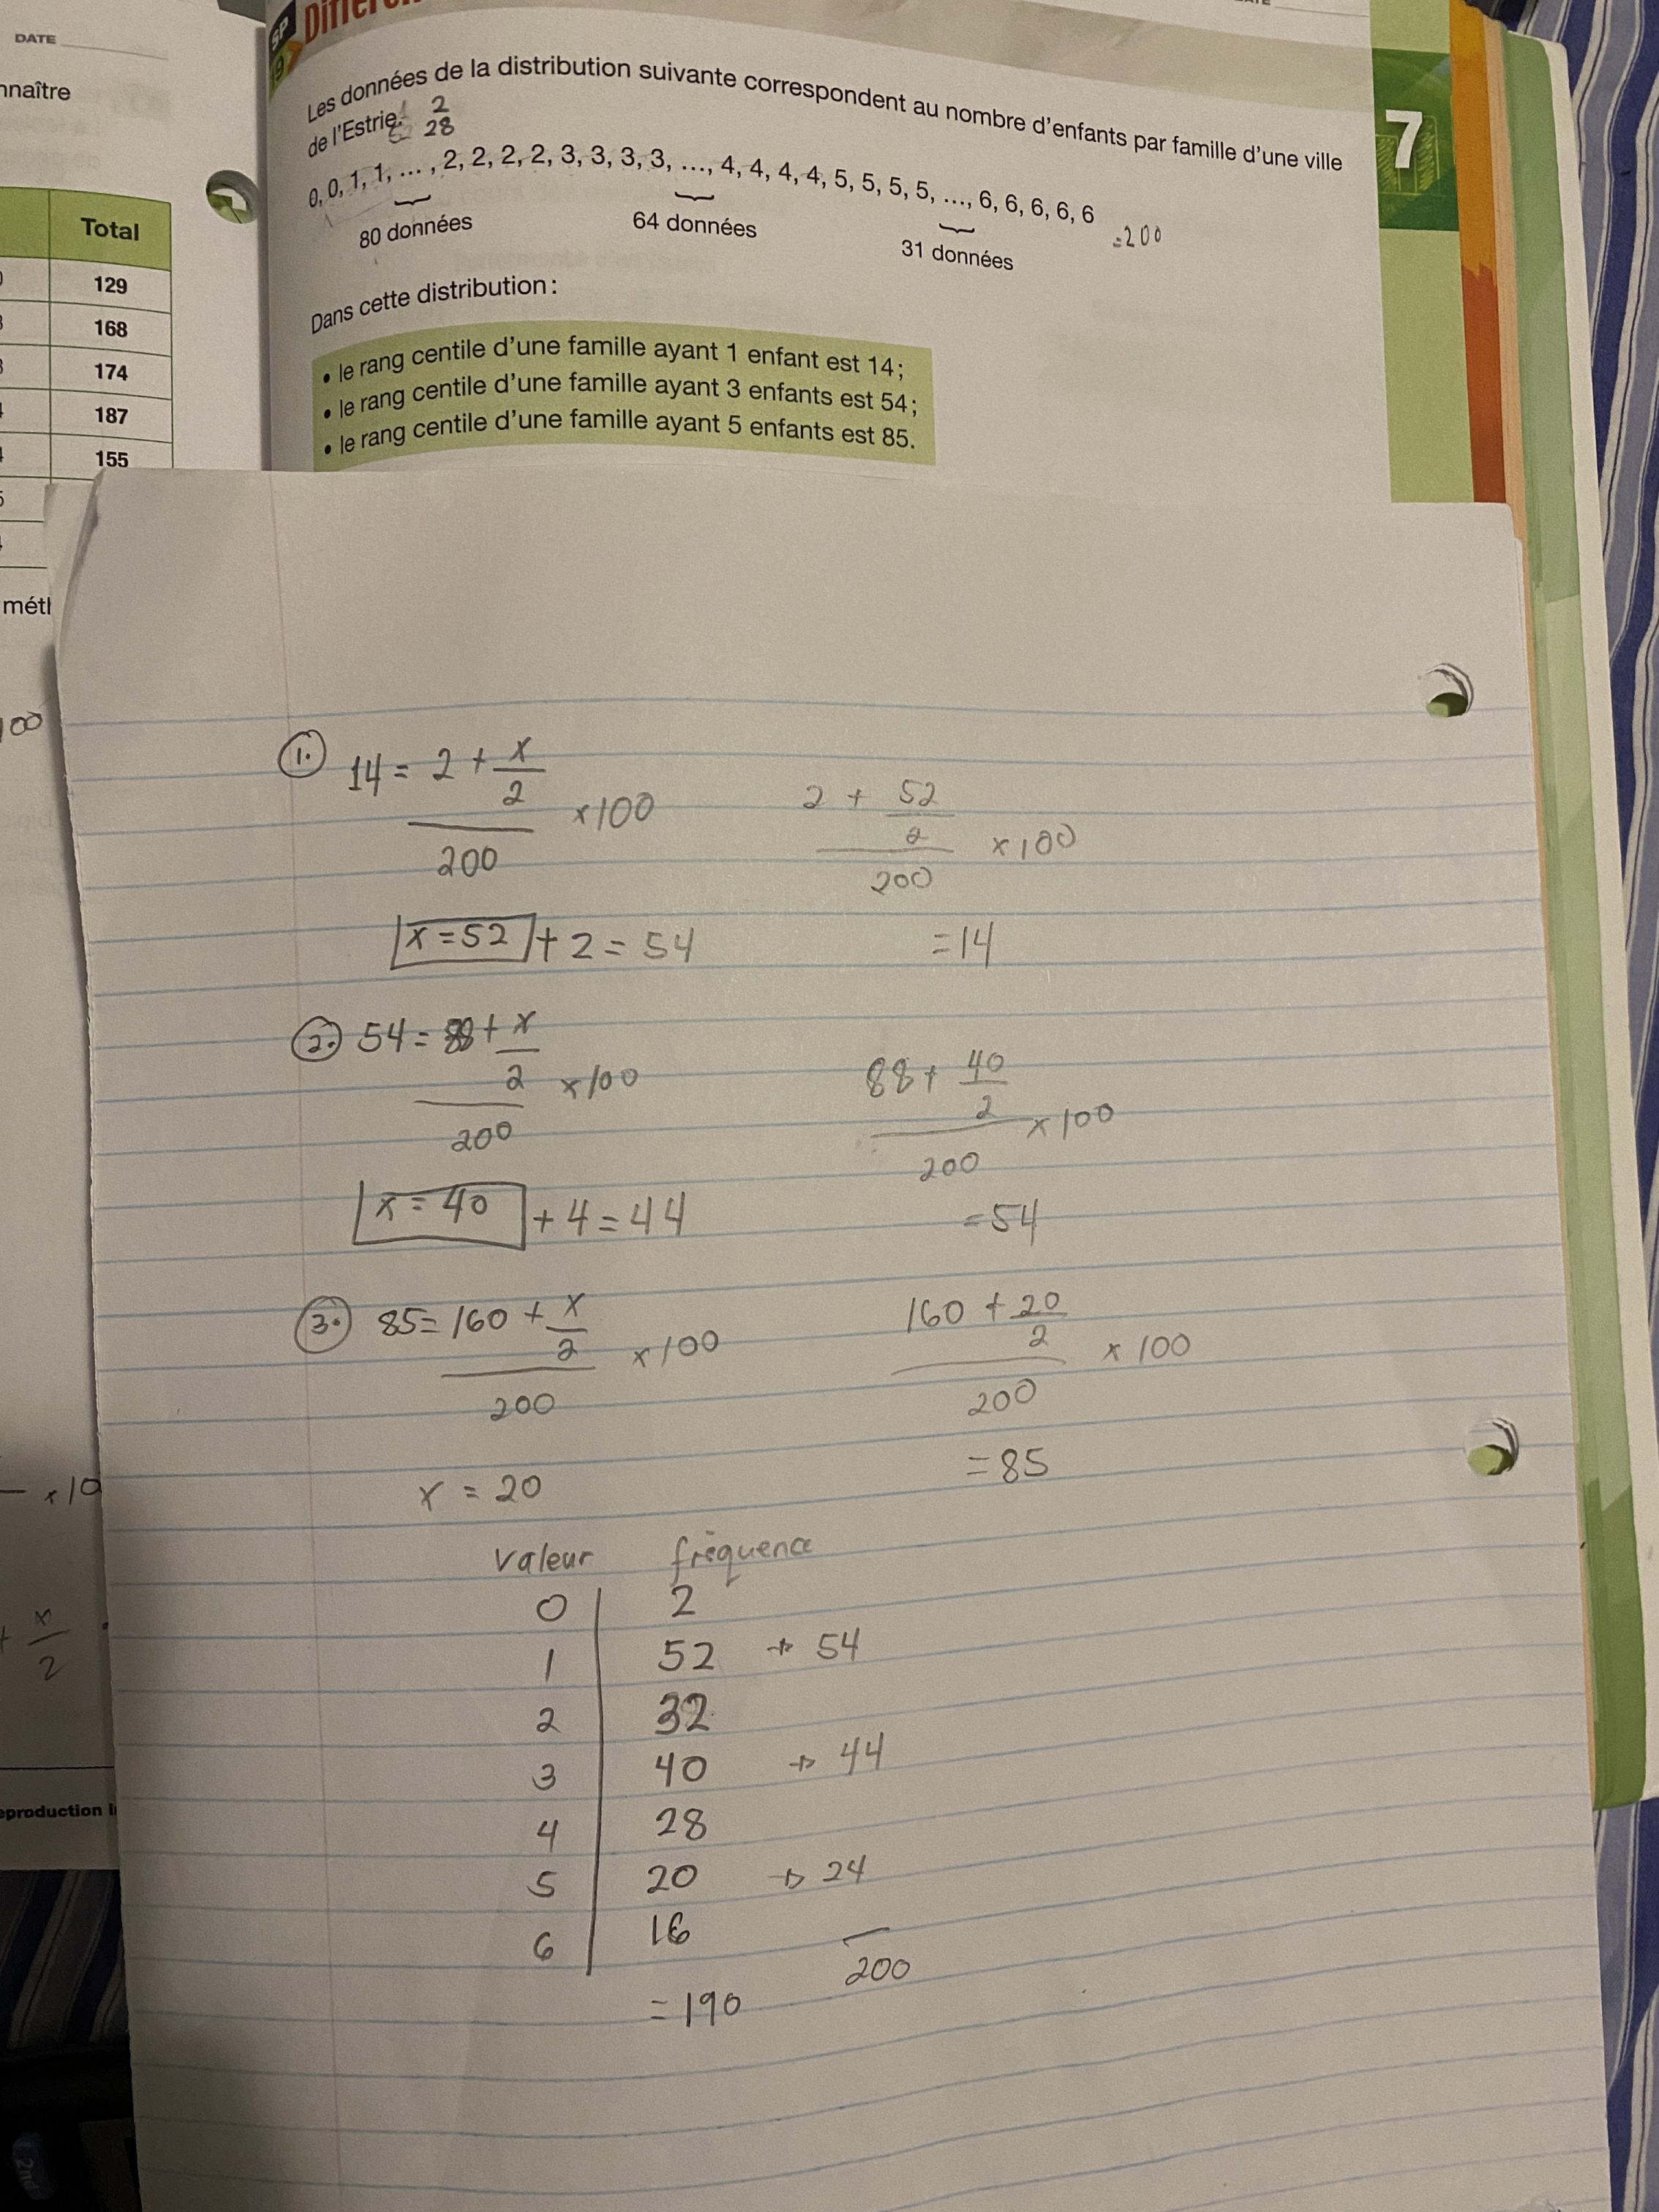 DATE
nnaître
Total
129
168
174
187
155
métl
100
× 10
+ x/2
eproduction i
SP
9
Différen
7
Les données de la distribution suivante correspondent au nombre d'enfants par famille d'une ville
de l'Estrie.
2
28
0, 0, 1, 1, ... , 2, 2, 2, 2, 3, 3, 3, 3, ..., 4, 4, 4, 4, 5, 5, 5, 5, ..., 6, 6, 6, 6, 6
80 données
64 données
31 données
=200
Dans cette distribution :
• le rang centile d'une famille ayant 1 enfant est 14 ;
• le rang centile d'une famille ayant 3 enfants est 54 ;
• le rang centile d'une famille ayant 5 enfants est 85.
1. 14 = 2 + x/2
200
×100
2 + 52/2
200
×100
x = 52 + 2 = 54
= 14
2. 54 = 88 + x/2
200
×100
88 + 40/2
200
×100
x = 40 + 4 = 44
= 54
3. 85 = 160 + x/2
200
×100
160 + 20/2
200
×100
x = 20
= 85
valeur fréquence
0 2
1 52 → 54
2 32
3 40 → 44
4 28
5 20 → 24
6 16
200
= 190
2nd